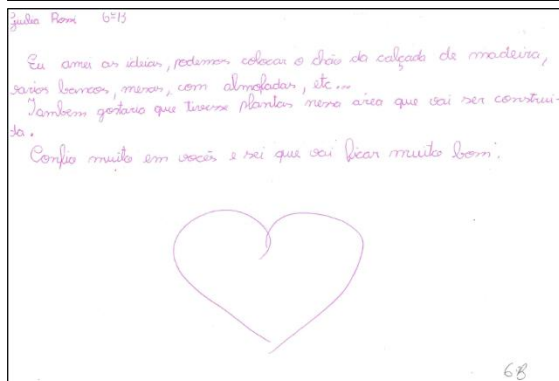 Giulia Romi 6ºB
Eu amei as ideias, podemos colocar o chão da calçada de madeira,
varios bancos, mesas, com almofadas, etc...
Tambem gostaria que tivesse plantas nessa area que vai ser construi-
da.
Confio muito em vocês e sei que vai ficar muito bom.
6B